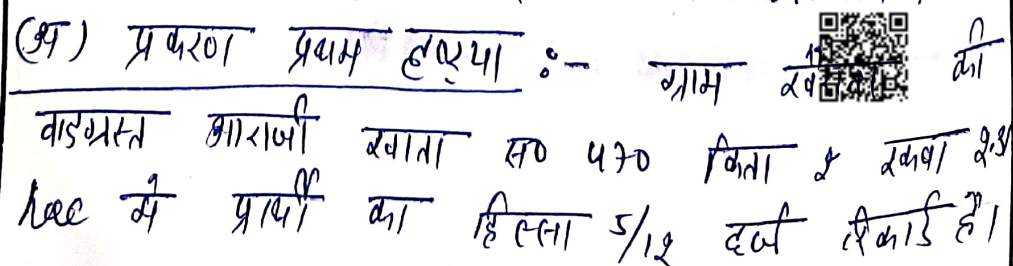 (अ) प्रकरण प्रथम दृष्टया :- ग्राम की
वादग्रस्त आराजी खाता स० 470 किता 2 रकबा 2.31
hec मे प्रार्थी का हिस्सा 5/12 दर्ज रिकार्ड है।